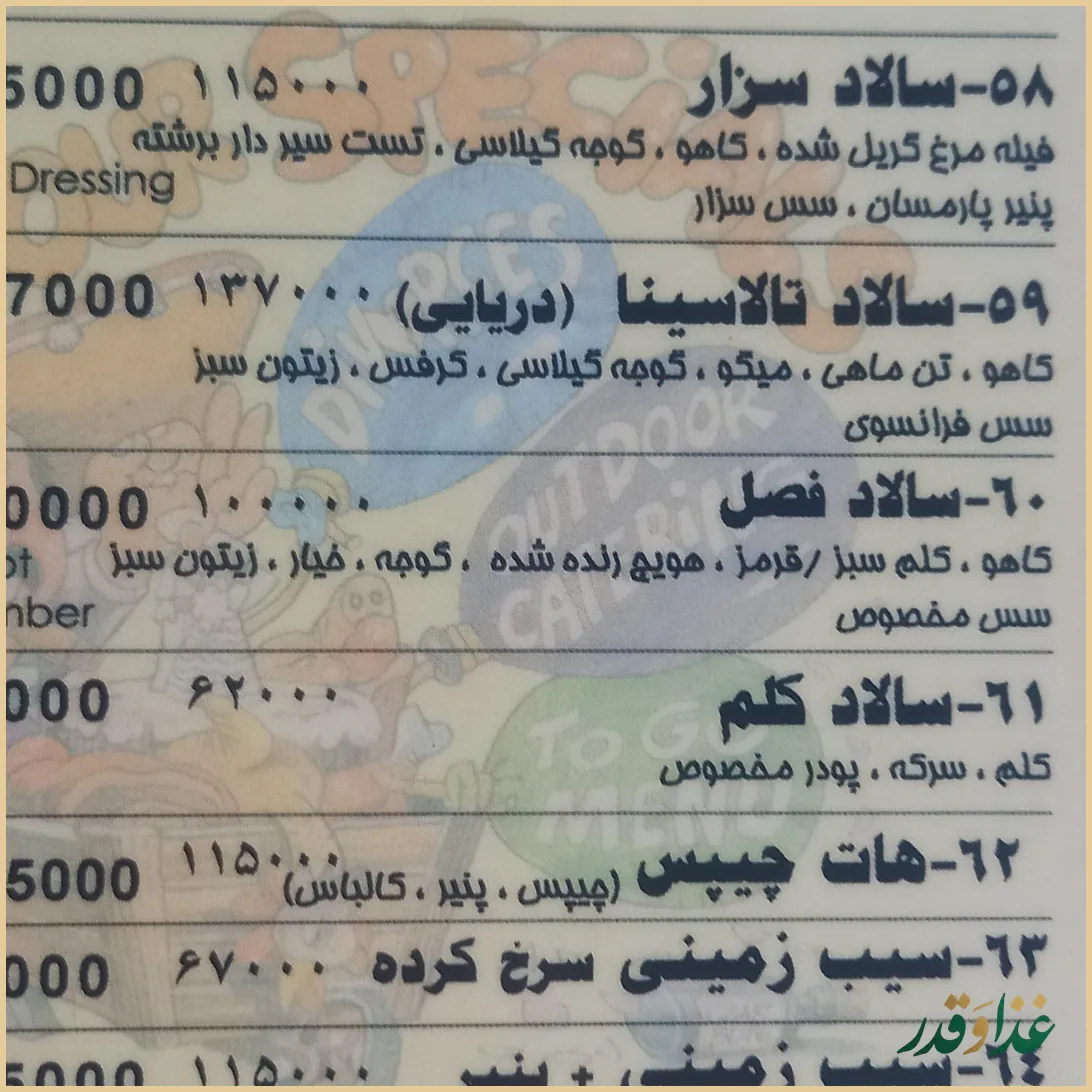 ۵۸-سالاد سزار ۱۱۵۰۰۰ 5000
فیله مرغ گریل شده ، کاهو ، گوجه گیلاسی ، تست سیر دار برشته
Dressing
پنیر پارمسان ، سس سزار
۵۹-سالاد تالاسینا (دریایی) ۱۳۷۰۰۰ 7000
کاهو ، تن ماهی ، میگو ، گوجه گیلاسی ، کرفس ، زیتون سبز
سس فرانسوی
۶۰-سالاد فصل ۱۰۰۰۰۰ 0000
کاهو ، کلم سبز /قرمز ، هویج رنده شده ، گوجه ، خیار ، زیتون سبز
سس مخصوص
۶۱-سالاد کلم ۶۲۰۰۰ 000
کلم ، سرکه ، پودر مخصوص
۶۲-هات چیپس (چیپس ، پنیر ، کالباس) ۱۱۵۰۰۰ 5000
۶۳-سیب زمینی سرخ کرده ۶۷۰۰۰ 000
۶۴-سیب زمینی + پنیر ۱۱۵۰۰۰ 5000
OUR SPECIALS
DINNERS
OUTDOOR CATERING
TO GO MENU
غذا و قدر